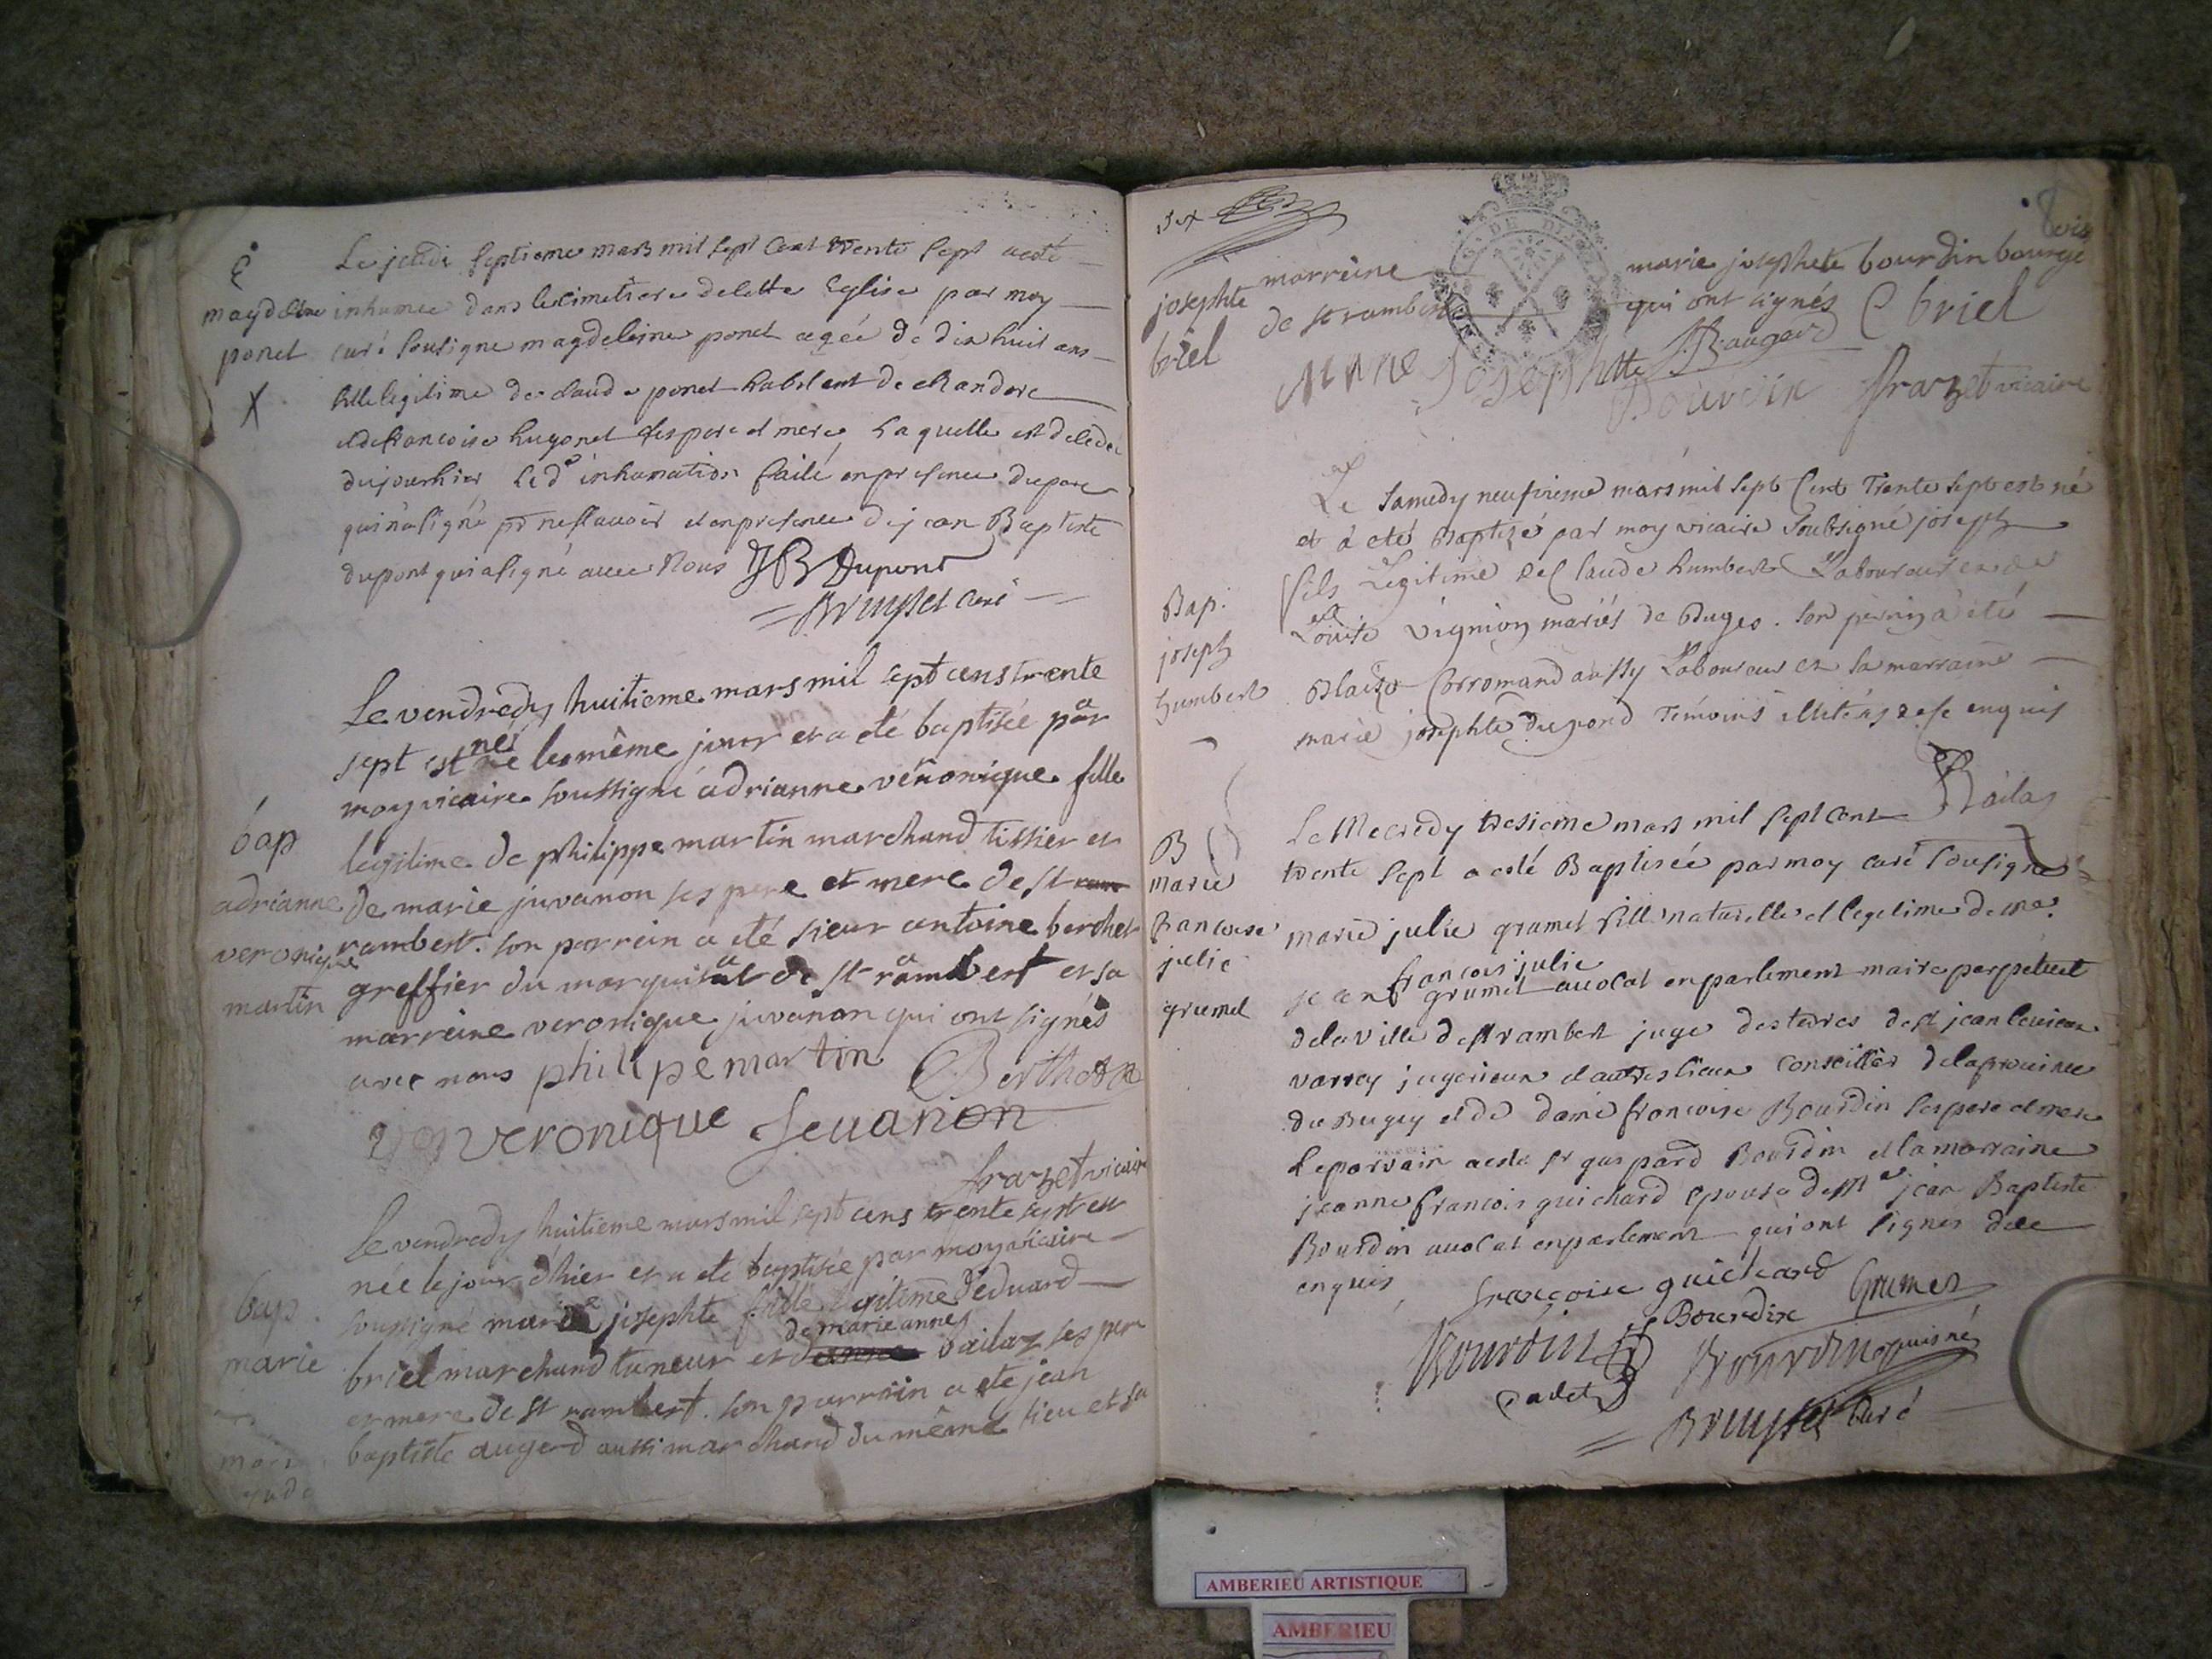 Le jeudi septieme mars mil sept cent trente sept a esté
magdelene inhumee dans le cimetiere de cette Eglise par moy
ponet curé sousigne magdeleine ponet agée de dix huit ans
X fille legitime de claude ponet habitant de chandore
et de francoise hugonet ses pere et mere laquelle est decedee
du jour hier lad inhumation faite en presence du pere
qui n'a signé pr ne scavoir et en presence de jean Baptiste
dupont qui a signé avec Nous JB Dupont
Bruyset curé
Le vendredy huitieme mars mil sept cens trente
sept est née le même jour et a eté baptisée par
moy vicaire soussigné adrianne véronique fille
bap legitime de philippe martin marchand tissier et
adrianne de marie juvanon ses pere et mere de st
veronique rambert. son parrein a eté sieur antoine berthet
martin greffier du marquisat de st rambert et sa
marreine veronique juvanon qui ont signés
avec nous philipe martin Berthet
veronique Jeuanon
frazet vicaire
Le vendredy huitieme mars mil sept cens trente sept est
née le jour d'hier et a eté baptisée par moy vicaire
bap soussigné marie josephte fille legitime d'eduard
marie briel marchand taneur et de marie anne bailaz ses pere
et mere de st rambert. son parrein a eté jean
baptiste augerd aussi marchand du même lieu et sa
josephte
briel
marreine marie josephete bourdin bourge
de st rambert qui ont signés
C briel
JB augerd
Marie Josephtte Bourdin frazet vicaire
Le samedy neufvieme mars mil sept Cent Trente sept est né
et à eté Baptizé par moy vicaire soubsigné joseph
fils Legitime de Claude humbert Laboureur et de
Bap. Louise vignion mariés de Buges. son parrin a été
joseph Blaize Corromand aussy Laboureur et la marraine
humbert marie josephte dupond Témoins illiterés de ce enquis
Bailaz
Le Mecredy tresieme mars mil sept cent
B trente sept a esté Baptisée par moy curé sousigné
marie marie julie grumet fille naturelle et legitime de me
francoise francois julie
julie jean grumet avocat en parlement maire perpetuel
grumet de la ville de st rambert juge des terres de st jean le vieux
varrey jujurieux et autres lieux conseiller de la province
du Bugey et de dame francoise Bourdin ses pere et mere
Le parrain a esté sr gaspard Bourdin et la marraine
jeanne francois guichard epouse de Me jean Baptiste
Bourdin avocat en parlement qui ont signes de ce
enquis
francoise guichard Grumet
Bourdin
Bourdin cadet Bourdin puisné
Bruyset curé
AMBERIEU ARTISTIQUE
AMBERIEU